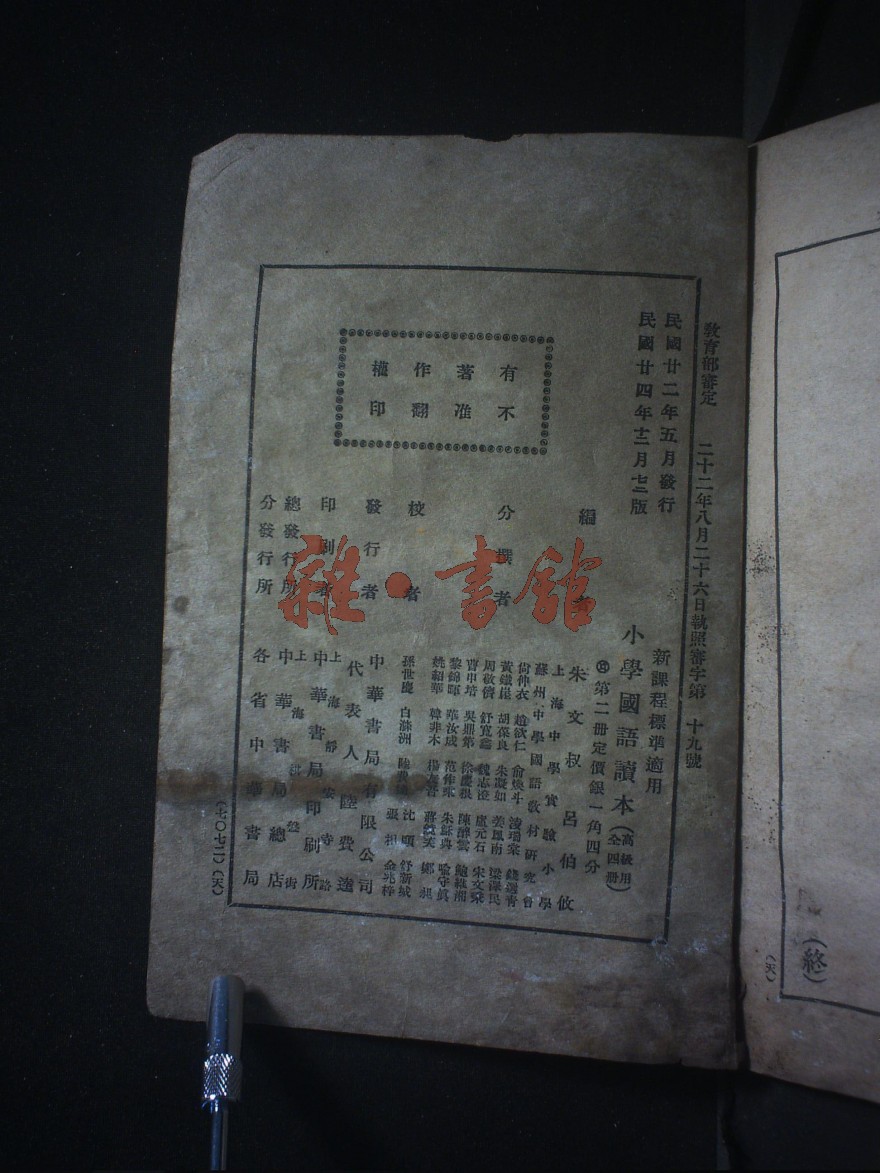 (終)
(天)
教育部審定 二十二年八月二十六日執照審字第 十九號
民國廿二年五月發行
民國廿四年十二月七三版
有不
著准
作翻
權印
新課程標準適用
小學國語讀本(高級用 全四冊)
第二冊定價銀一角四分
編者
朱文叔 呂伯攸
分撰者
上海中學實驗小學
蘇州中學國語教材研究會
尙仲衣 趙欲仁 俞煥斗
黃鐵崖 胡葆良 朱凝如 姜鳳南 梁
周敬儕 舒 魏志澄 盧元石 宋文
曹申培 吳鼎第 徐 陳醉雲 鮑維湘
黎錦暉 華汝成 范作乘 朱穌典 喻守真
姚紹華 韓非木 楊 蔣鏡芙 鄭昶
校者
孫世慶 白滌洲 陸費 沈頤 舒新城
張相 金兆梓
發行者
中華書局有限公司
代表人 陸費逵
印刷者
上海靜安寺路
中華書局印刷所
總發行所
上海棋盤街
中華書局總店
分發行所
各省中華書局
(七〇七二)(天)
雜·書館